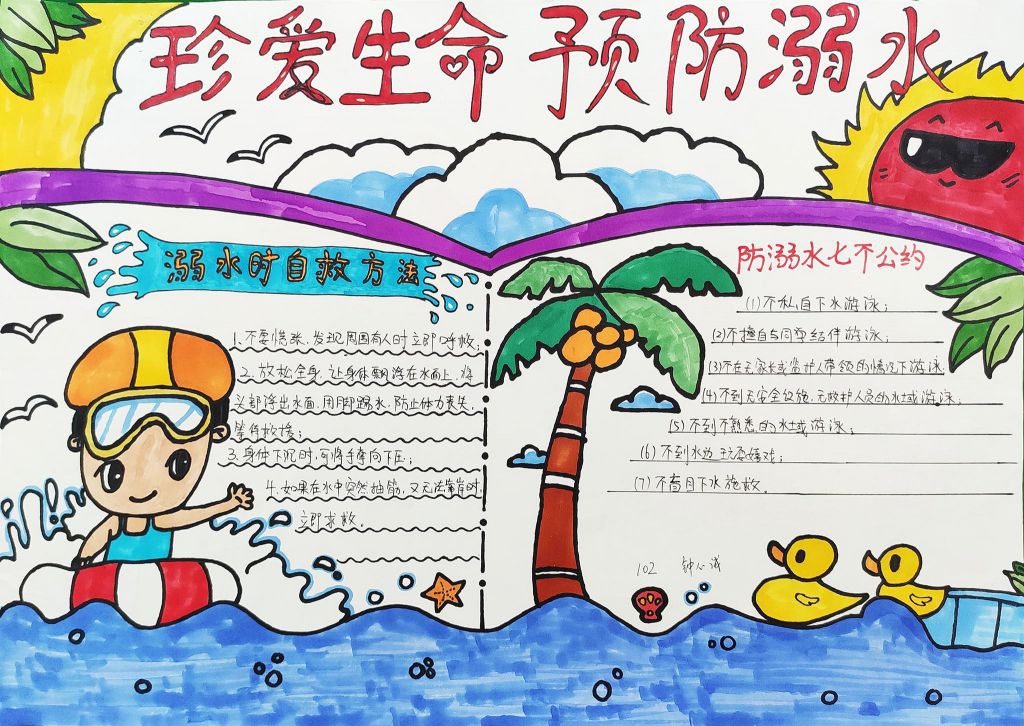 珍爱生命 预防溺水
溺水时自救方法
1、不要慌张,发现周围有人时立即呼救;
2、放松全身,让身体飘浮在水面上,将
头部浮出水面,用脚踢水,防止体力丧失,
等待救援;
3、身体下沉时,可将手掌向下压;
4、如果在水中突然抽筋,又无法靠岸时,
立即求救。
防溺水七不公约
(1)不私自下水游泳;
(2)不擅自与同学结伴游泳;
(3)不在无家长或监护人带领的情况下游泳
(4)不到无安全设施、无救护人员的水域游泳;
(5)不到不熟悉的水域游泳;
(6)不到水边玩耍嬉戏;
(7)不盲目下水施救。
102 钟心诚